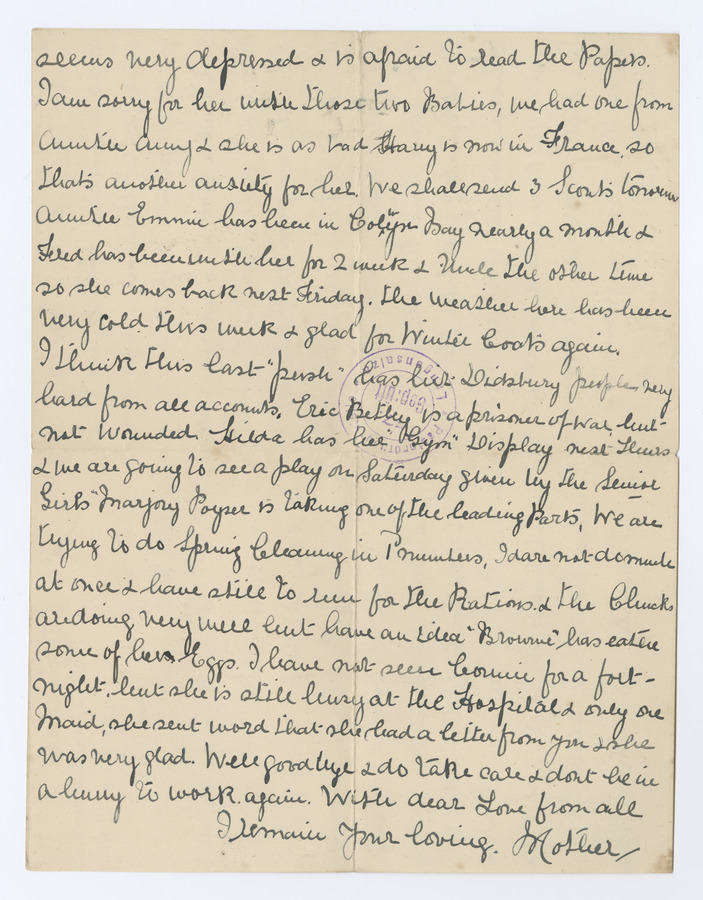 seems very depressed & is afraid to read the Papers.
I am sorry for her with those two Babies, we had one from
Auntie Amy & she is as bad Harry is now in France, so
thats another anxiety for her. We shall send 3 Scouts tomorrow
Auntie Emmie has been in Colwyn Bay nearly a month &
Fred has been with her for 2 week & Uncle the other time
so she comes back next Friday. The weather here has been
very cold this week & glad for Winter Coats again.
I think this last "push" has hit Didsbury people very
hard from all accounts, Eric Betley is a prisoner of War, but
not wounded. Hilda has her "Gym" Display next Thurs
& we are going to see a play on Saturday given by the Senior
Girls "Marjory Poyser is taking one of the leading Parts, We are
trying to do Spring Cleaning in I dare not do much
at once & have still to run for the Rations. & the Chucks
are doing very well but have an idea "Browne" has eaten
some of her Eggs. I have not seen Connie for a fort-
night, but she is still busy at the Hospital & only one
Maid, she sent word that she had a letter from you & she
was very glad. Well good bye & do take care & dont be in
a hurry to work again. With dear Love from all
I remain Your loving. Mother